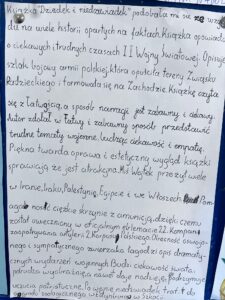 Książka „Dziadek i niedźwiadek" podobała mi się ze wzglę-
du na wiele historii opartych na faktach. Książka opowiada
o ciekawych i trudnych czasach II Wojny światowej. Opisuje
szlak bojowy armii polskiej, która opuściła tereny Związku
Radzieckiego i formowała się na Zachodzie. Książkę czyta
się z łatwością, a sposób narracji jest zabawny i ciekawy.
Autor zdołał w łatwy i zabawny sposób przedstawić
trudne tematy wojenne, budząc ciekawość i empatię.
Piękna twarda oprawa i estetyczny wygląd książki
sprawiają że jest atrakcyjna. Miś Wojtek przeżył wiele
w Iranie, Iraku, Palestynie, Egipcie i we Włoszech. Pom
agał nosić ciężkie skrzynie z amunicją, dzięki czemu
został uwieczniony w oficjalnym emblemacie 22. Kompanii
zaopatrywania artylerii 2. Korpusu Polskiego. Obecność oswojo-
nego i sympatycznego zwierzaka łagodzi opis dramaty-
cznych wydarzeń wojennych. Budzi ciekawość świata,
pobudza wyobraźnię nawet
uczucia patriotyczne. To niedźwiadek trafił do
ogrodu zoologicznego w Szkocji.